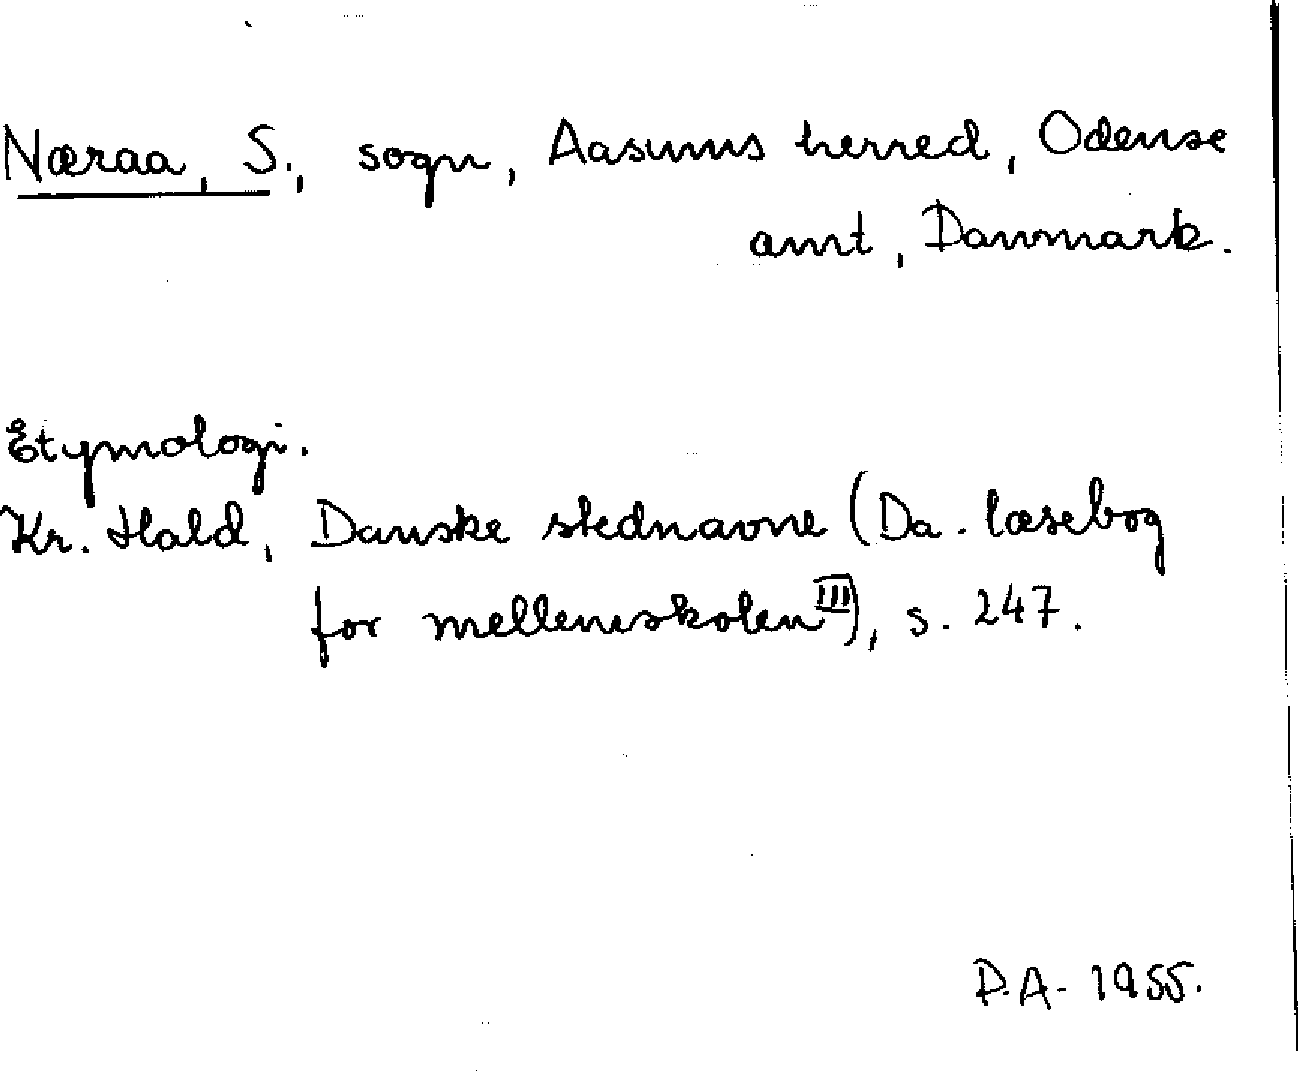 Næraa, S., sogn, Aasums herred, Odense
amt, Danmark.
Etymologi.
Kr. Hald, Danske stednavne (Da. læsebog
for mellemskolen III), s. 247.
P.A. 1955.